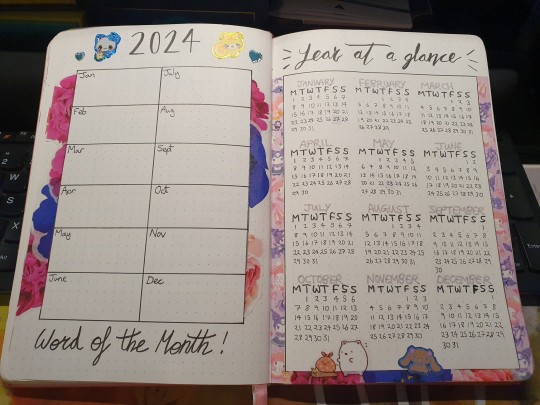 2024
Jan
July
Feb
Aug
Mar
Sept
Apr
Oct
May
Nov
June
Dec
Word of the Month!
Year at a glance
JANUARY
M T W T F S S
1 2 3 4 5 6 7
8 9 10 11 12 13 14
15 16 17 18 19 20 21
22 23 24 25 26 27 28
29 30 31
FEBRUARY
M T W T F S S
1 2 3 4
5 6 7 8 9 10 11
12 13 14 15 16 17 18
19 20 21 22 23 24 25
26 27 28 29
MARCH
M T W T F S S
1 2 3
4 5 6 7 8 9 10
11 12 13 14 15 16 17
18 19 20 21 22 23 24
25 26 27 28 29 30 31
APRIL
M T W T F S S
1 2 3 4 5 6 7
8 9 10 11 12 13 14
15 16 17 18 19 20 21
22 23 24 25 26 27 28
29 30
MAY
M T W T F S S
1 2 3 4 5
6 7 8 9 10 11 12
13 14 15 16 17 18 19
20 21 22 23 24 25 26
27 28 29 30 31
JUNE
M T W T F S S
1 2
3 4 5 6 7 8 9
10 11 12 13 14 15 16
17 18 19 20 21 22 23
24 25 26 27 28 29 30
JULY
M T W T F S S
1 2 3 4 5 6 7
8 9 10 11 12 13 14
15 16 17 18 19 20 21
22 23 24 25 26 27 28
29 30 31
AUGUST
M T W T F S S
1 2 3 4
5 6 7 8 9 10 11
12 13 14 15 16 17 18
19 20 21 22 23 24 25
26 27 28 29 30 31
SEPTEMBER
M T W T F S S
1
2 3 4 5 6 7 8
9 10 11 12 13 14 15
16 17 18 19 20 21 22
23 24 25 26 27 28 29
30
OCTOBER
M T W T F S S
1 2 3 4 5 6
7 8 9 10 11 12 13
14 15 16 17 18 19 20
21 22 23 24 25 26 27
28 29 30 31
NOVEMBER
M T W T F S S
1 2 3
4 5 6 7 8 9 10
11 12 13 14 15 16 17
18 19 20 21 22 23 24
25 26 27 28 29 30
DECEMBER
M T W T F S S
1
2 3 4 5 6 7 8
9 10 11 12 13 14 15
16 17 18 19 20 21 22
23 24 25 26 27 28 29
30 31